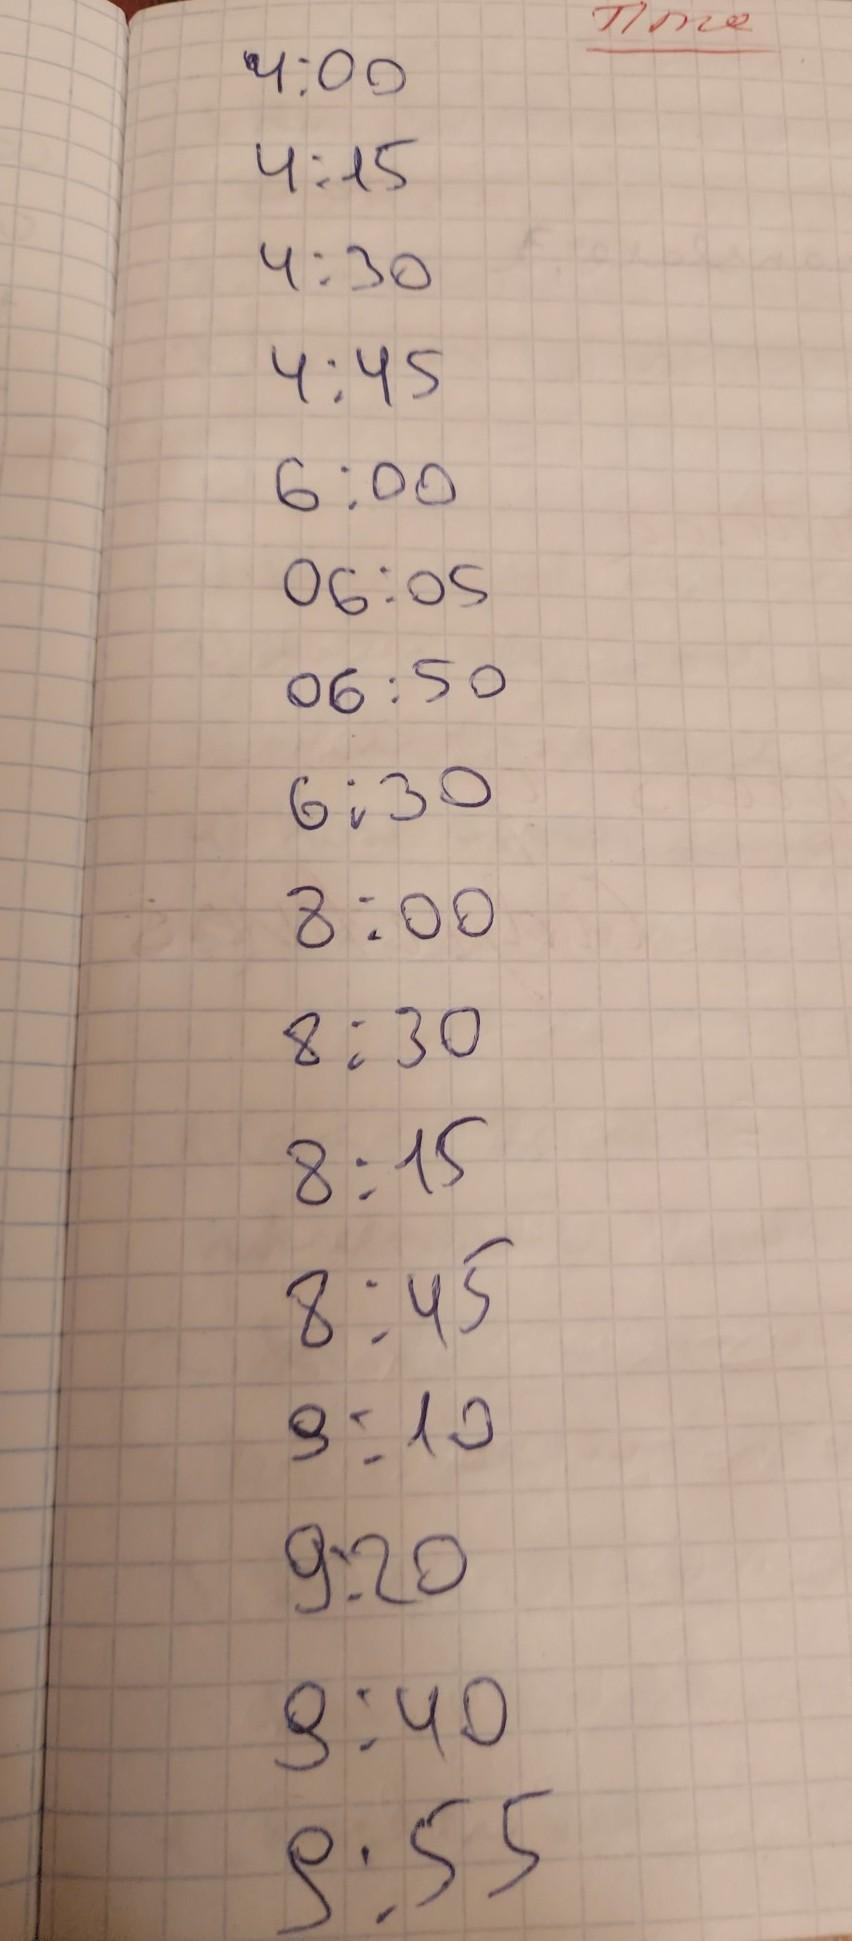 4:00
4:15
4:30
4:45
6:00
06:05
06:50
6:30
8:00
8:30
8:15
8:45
9:10
9:20
9:40
9:55